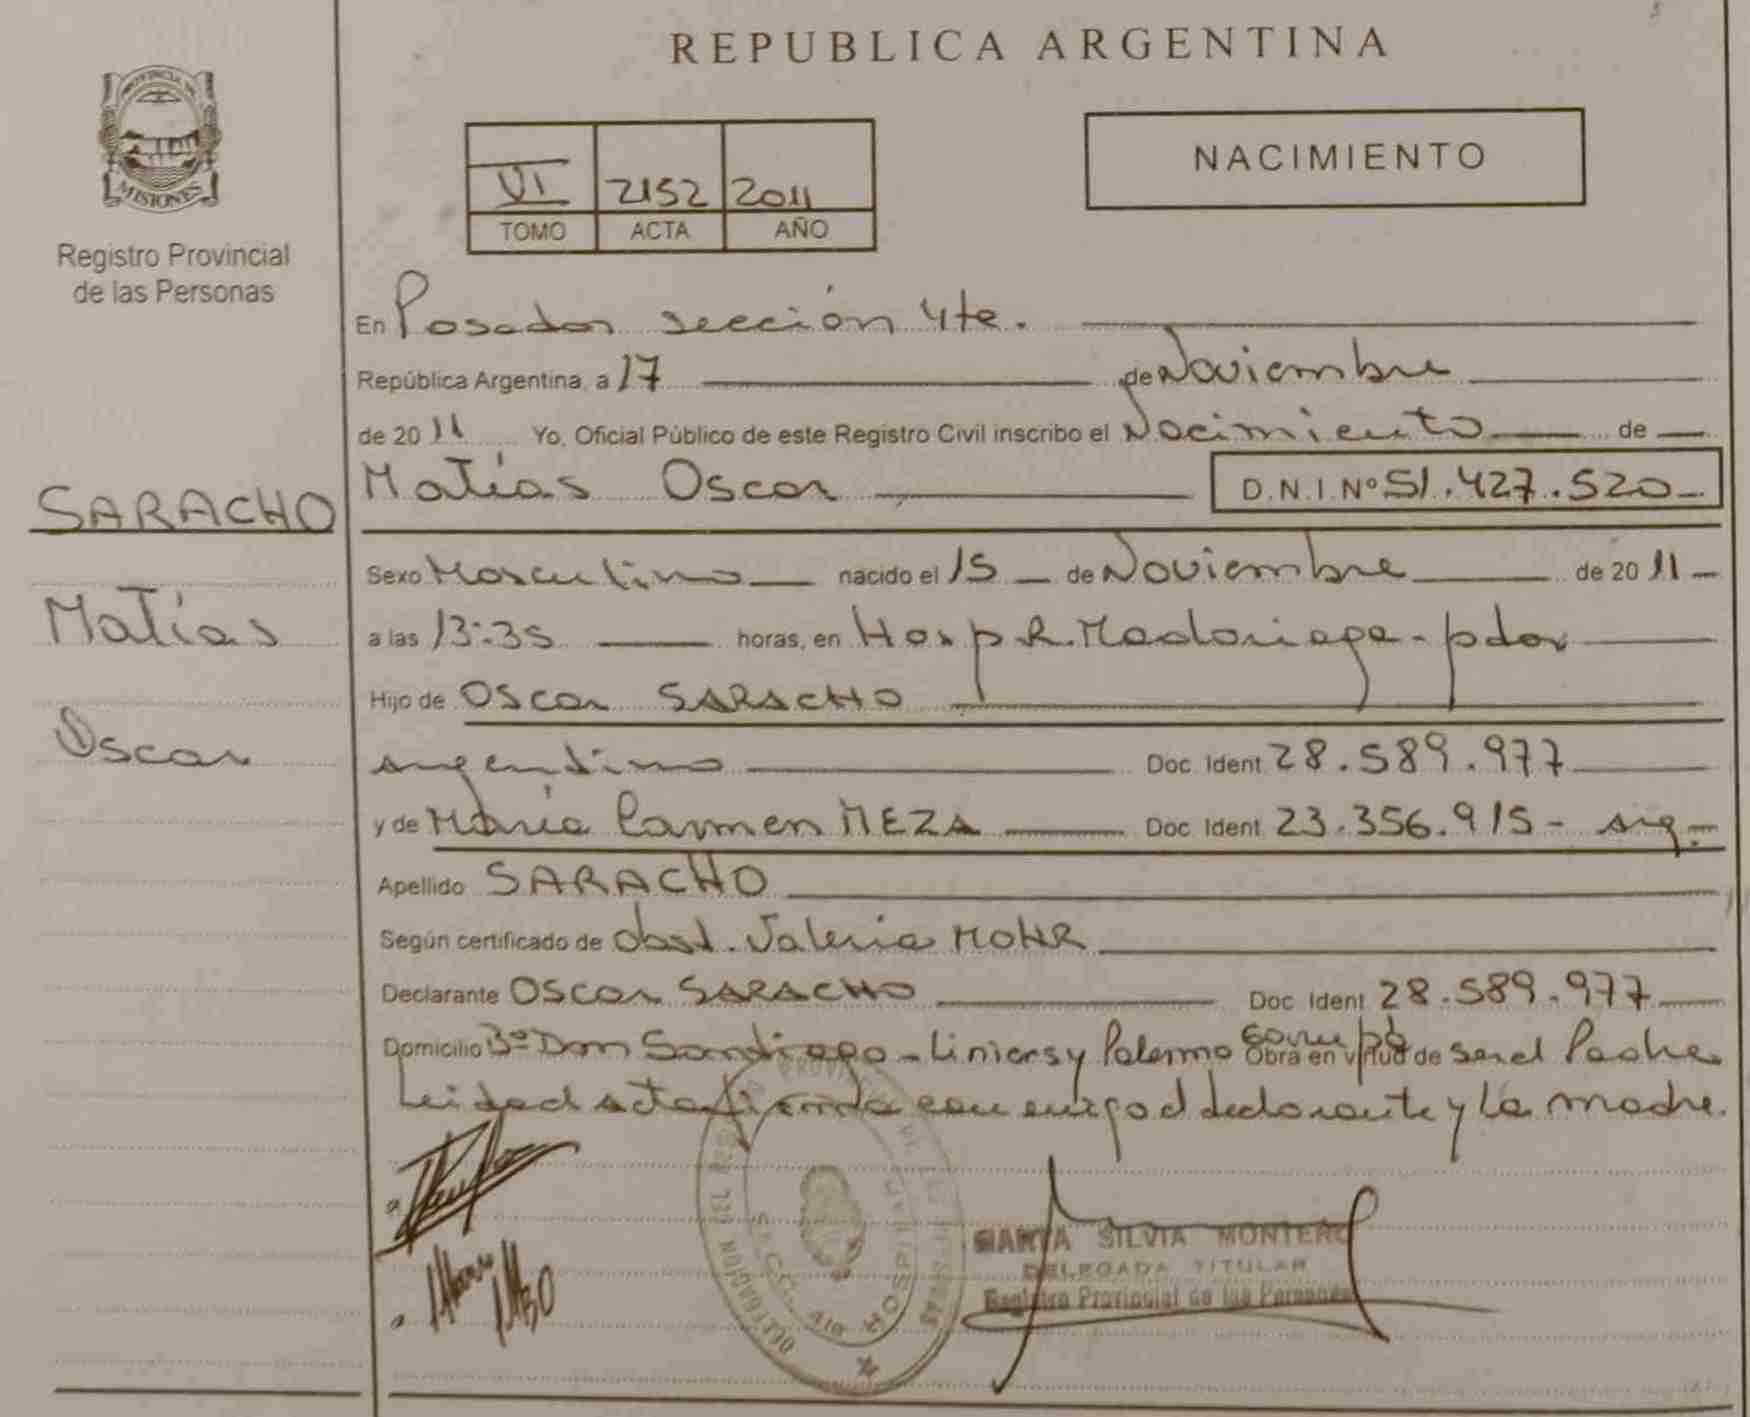 REPUBLICA ARGENTINA
MISIONES
Registro Provincial
de las Personas
VI 2152 2011
TOMO ACTA AÑO
NACIMIENTO
En Posadas sección 4ta.
República Argentina, a 17 de Noviembre
de 2011 Yo, Oficial Público de este Registro Civil inscribo el Nacimiento de
Matías Oscar D.N.I. Nº 51.427.520
SARACHO
Matías
Oscar
Sexo Masculino nacido el 15 de Noviembre de 2011
a las 13:35 horas, en Hosp R. Madariaga - pdas
Hijo de Oscar SARACHO
argentino Doc. Ident. 28.589.977
y de María Carmen MEZA Doc. Ident. 23.356.915 - arg.
Apellido SARACHO
Según certificado de Obst. Valeria MOHR
Declarante Oscar SARACHO Doc. Ident. 28.589.977
Domicilio Bº Don Santiago - Liniers y Palermo Obra en virtud de ser el Padre
Leida el acta firman conmigo el declarante y la madre.
MARTA SILVIA MONTERO
DELEGADA TITULAR
Registro Provincial de las Personas